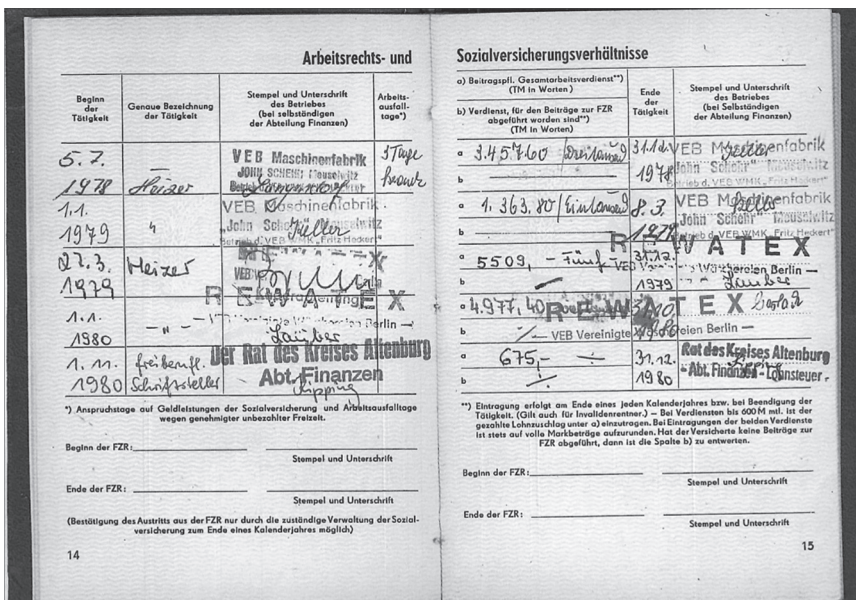 Arbeitsrechts- und
Beginn
der
Tätigkeit
Genaue Bezeichnung
der Tätigkeit
Stempel und Unterschrift
des Betriebes
(bei Selbständigen
der Abteilung Finanzen)
Arbeits-
ausfall-
tage*)
5. 7.
1978
Heizer
VEB Maschinenfabrik
"JOHN SCHEHR" Meuselwitz
3 Tage
1.1.
1979
"
VEB Maschinenfabrik
"John Schehr" Meuselwitz
Betrieb d. VEB WMK „Fritz Heckert"
Keller
27.3.
1979
Heizer
VEB
REWATEX
1.1.
1980
- " -
Berlin —
Läuber
1. 11.
1980
freiberufl.
Schriftsteller
Der Rat des Kreises Altenburg
Abt. Finanzen
Kipping
*) Anspruchstage auf Geldleistungen der Sozialversicherung und Arbeitsausfalltage
wegen genehmigter unbezahlter Freizeit.
Beginn der FZR:
Stempel und Unterschrift
Ende der FZR:
Stempel und Unterschrift
(Bestätigung des Austritts aus der FZR nur durch die zuständige Verwaltung der Sozial-
versicherung zum Ende eines Kalenderjahres möglich)
14
Sozialversicherungsverhältnisse
a) Beitragspfl. Gesamtarbeitsverdienst**)
(TM in Worten)
b) Verdienst, für den Beiträge zur FZR
abgeführt worden sind**)
(TM in Worten)
Ende
der
Tätigkeit
Stempel und Unterschrift
des Betriebes
(bei Selbständigen
der Abteilung Finanzen)
a 3.457.60 / Dreitausend
b
31.12.
1978
VEB Maschinenfabrik
"John Schehr" Meuselwitz
Betrieb d. VEB WMK „Fritz Heckert"
Keller
a 1.363.80 / Eintausend
b
8.3.
1979
VEB Maschinenfabrik
"John Schehr" Meuselwitz
Betrieb d. VEB WMK „Fritz Heckert"
Keller
a 5509, - Fünf -
b
31.12.
1979
REWATEX
VEB Vereinigte Wäschereien Berlin —
Läuber
a 4.977,40
b
REWATEX
VEB Vereinigte Wäschereien Berlin —
a 675,- ÷
b ÷
31.12.
1980
Rat des Kreises Altenburg
- Abt. Finanzen - Lohnsteuer -
Kipping
**) Eintragung erfolgt am Ende eines jeden Kalenderjahres bzw. bei Beendigung der
Tätigkeit. (Gilt auch für Invalidenrentner.) – Bei Verdiensten bis 600 M mtl. ist der
gezahlte Lohnzuschlag unter a) einzutragen. Bei Eintragungen der beiden Verdienste
ist stets auf volle Markbeträge aufzurunden. Hat der Versicherte keine Beiträge zur
FZR abgeführt, dann ist die Spalte b) zu entwerten.
Beginn der FZR:
Stempel und Unterschrift
Ende der FZR:
Stempel und Unterschrift
15